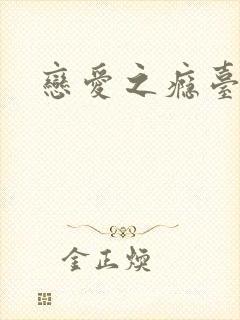 戀愛之癮臺
金正煥